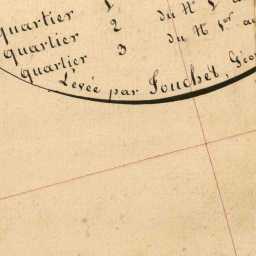 quartier 1
quartier 2 du N°
quartier 3 du N°
Levée par Fouchet, Géo